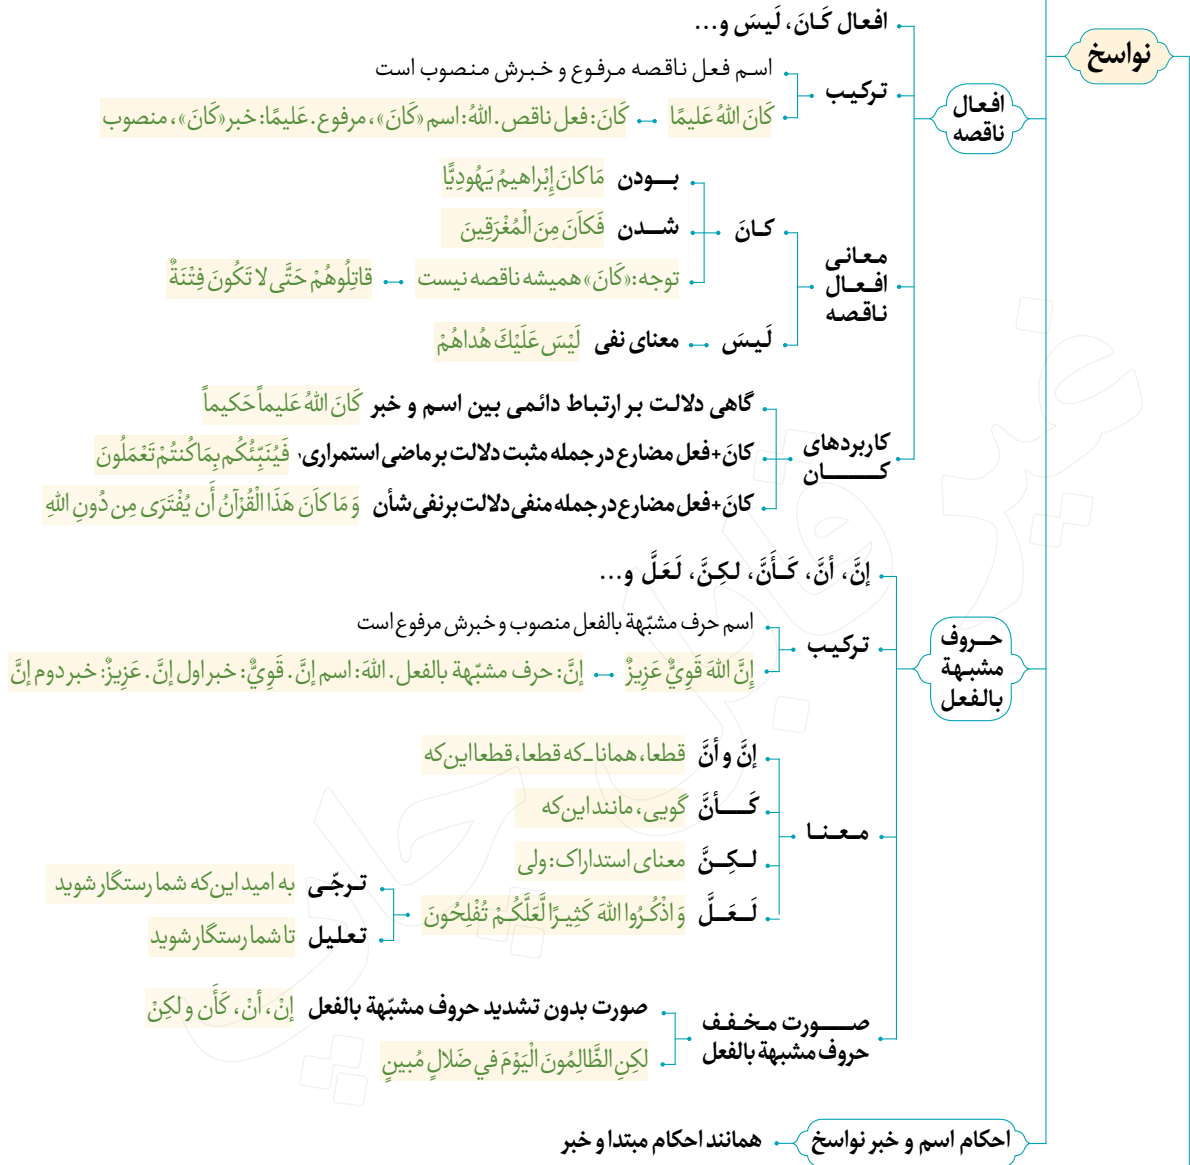 نواسخ
افعال ناقصه
افعال كَانَ، لَیسَ و...
ترکیب
اسم فعل ناقصه مرفوع و خبرش منصوب است
كَانَ اللهُ عَلیمًا ← كَانَ: فعل ناقص. اللهُ: اسم «كَانَ»، مرفوع. عَلیمًا: خبر «كَانَ»، منصوب
معانی افعال ناقصه
كانَ
بودن مَا كانَ إِبْراهیمُ یَهُودِیًّا
شدن فَكاَنَ مِنَ الْمُغْرَقِینَ
توجه: «كَانَ» همیشه ناقصه نیست ← قاتِلُوهُمْ حَتَّى لا تَكُونَ فِتْنَةٌ
لَیسَ ← معنای نفی لَیْسَ عَلَیْكَ هُداهُمْ
کاربردهای كان
گاهی دلالت بر ارتباط دائمی بین اسم و خبر كَانَ اللهُ عَلیماً حَكیماً
كانَ+فعل مضارع در جمله مثبت دلالت بر ماضی استمراری، فَیُنَبِّئُكُم بِمَا كُنتُمْ تَعْمَلُونَ
كانَ+فعل مضارع در جمله منفی دلالت بر نفی شأن وَ مَا كاَنَ هَذَا الْقُرْآنُ أَن یُفْتَرَى مِن دُونِ اللهِ
حروف مشبهة بالفعل
إنَّ، أنَّ، كَأَنَّ، لكِنَّ، لَعَلَّ و...
ترکیب
اسم حرف مشبّهة بالفعل منصوب و خبرش مرفوع است
إِنَّ اللهَ قَوِيٌّ عَزِیزٌ ← إنَّ: حرف مشبّهة بالفعل. اللهَ: اسم إنَّ. قَوِيٌّ: خبر اول إنَّ. عَزِیزٌ: خبر دوم إنَّ
معنا
إنَّ و أنَّ قطعا، همانا ـ که قطعا، قطعا این‌که
كَأنَّ گویی، مانند این‌که
لكِنَّ معنای استداراک: ولی
لَعَلَّ وَ اذْكُرُوا اللهَ كَثِیرًا لَّعَلَّكُمْ تُفْلِحُونَ
ترجّی به امید این‌که شما رستگار شوید
تعلیل تا شما رستگار شوید
صورت مخفف حروف مشبهة بالفعل
صورت بدون تشدید حروف مشبّهة بالفعل إنْ، أنْ، كَأَن و لكِنْ
لكِنِ الظَّالِمُونَ الْیَوْمَ في ضَلالٍ مُبینٍ
احکام اسم و خبر نواسخ همانند احکام مبتدا و خبر
غیر قابل چاپ